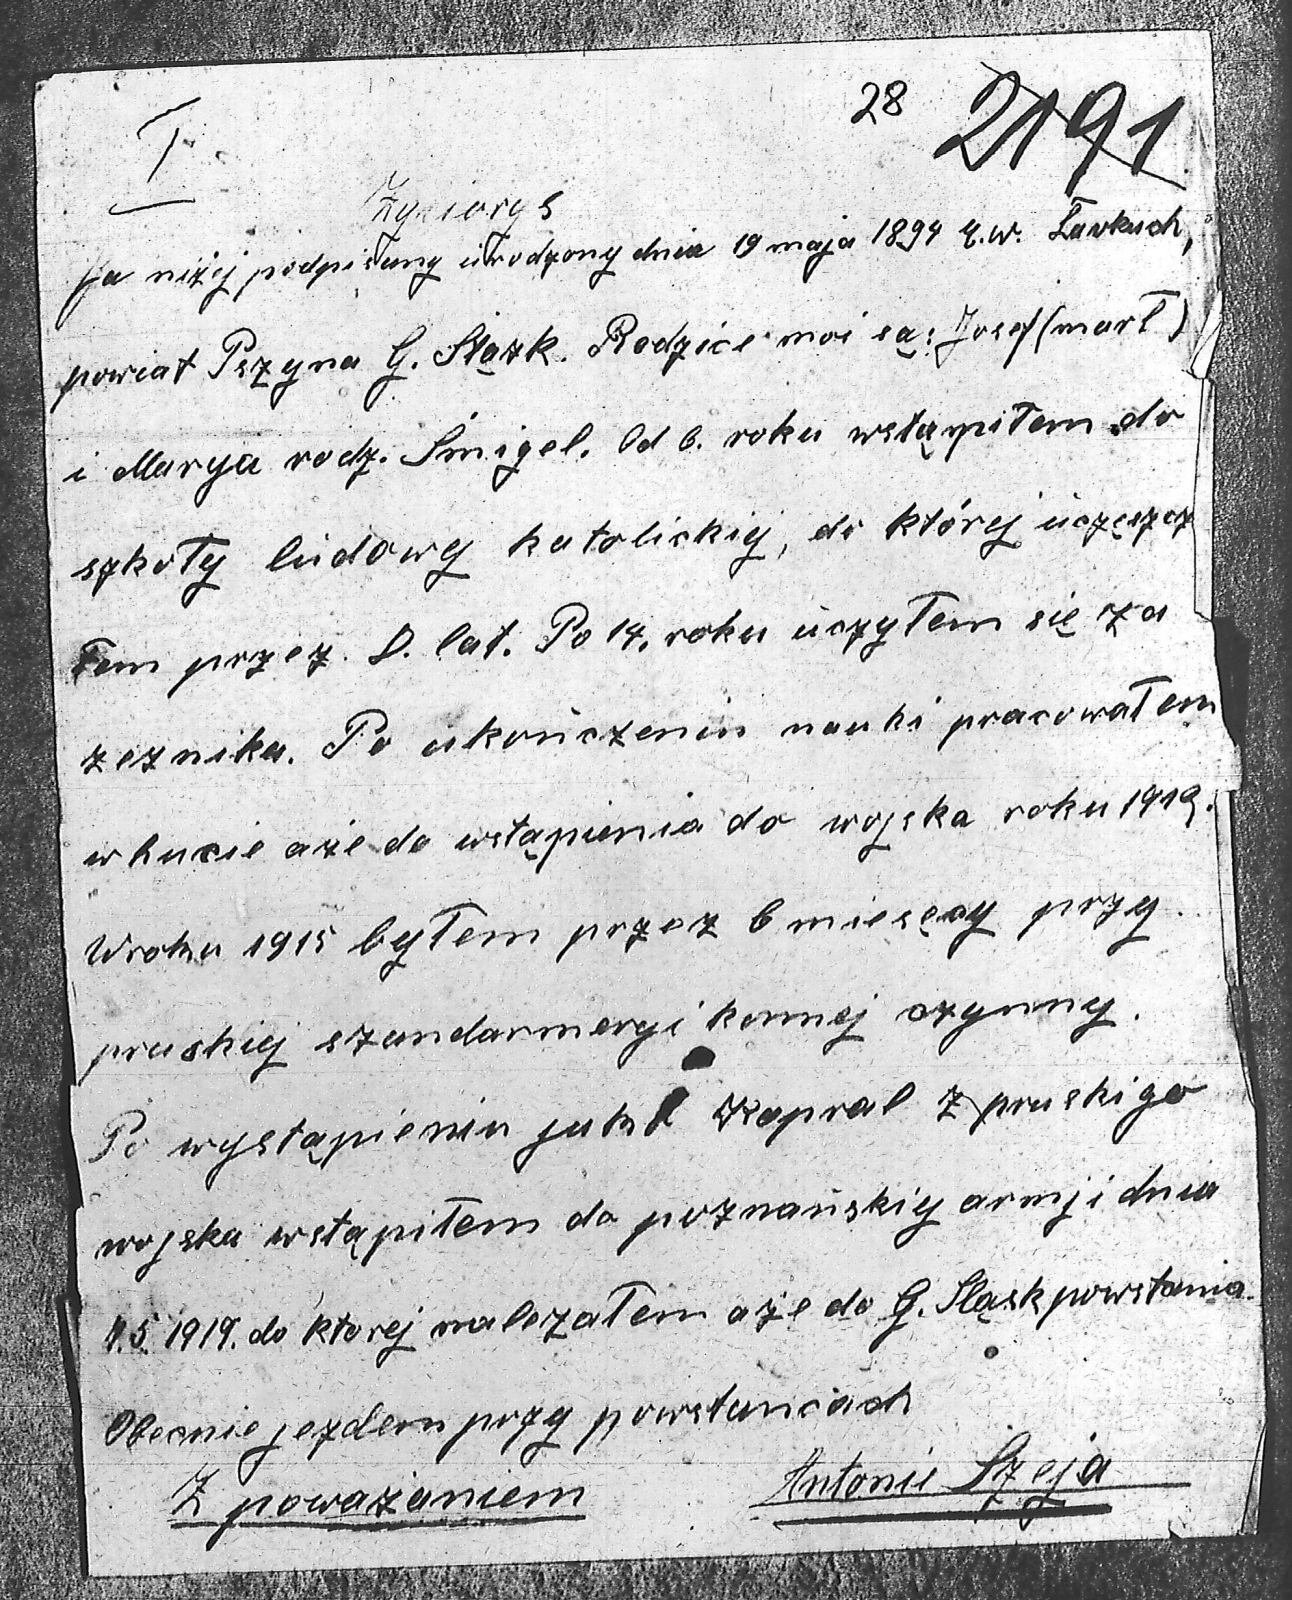 28 2191
I
Życiorys
Ja niżej podpisany urodzony dnia 19 maja 1894 r. w. Ławkach,
powiat Pszyna G. Sląsk. Rodzice moi są: Josef (marł)
i Marya rodz. Śmigel. Od 6. roku wstąpiłem do
szkoły ludowy katolickiej, do której uczęszcz
łem przez. 8. lat. Po 14. roku uczyłem się za
rzeznika. Po ukończeniu nauki pracowałem
w hucie aże do wstąpienia do wojska roku
W roku 1915 byłem przez 6 miesęcy przy
pruskiej szandarmeryi konnej czynny.
Po wystąpieniu jako Kapral z pruskigo
wojska wstąpiłem do poznańskiy armji dnia
1.5. 1919. do ktorej nalezałem aże do G. Sląsk powstania.
Obecnie jezdem przy powstańcach
Z poważaniem Antonii Szeja